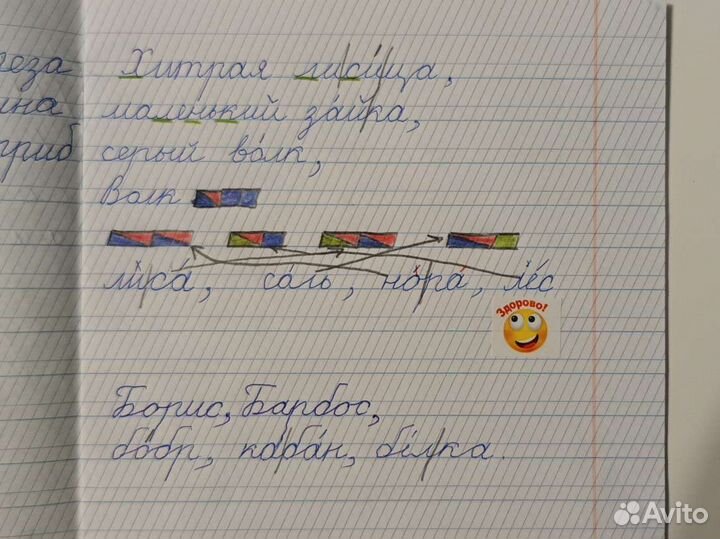 Хитрая лиси́ца,
маленький за́йка,
гриб серый во́лк,
Волк
лиса́, со́ль, нора́, ле́с
Здорово!
Борис, Барбос,
бо́бр, каба́н, бе́лка.
Avito